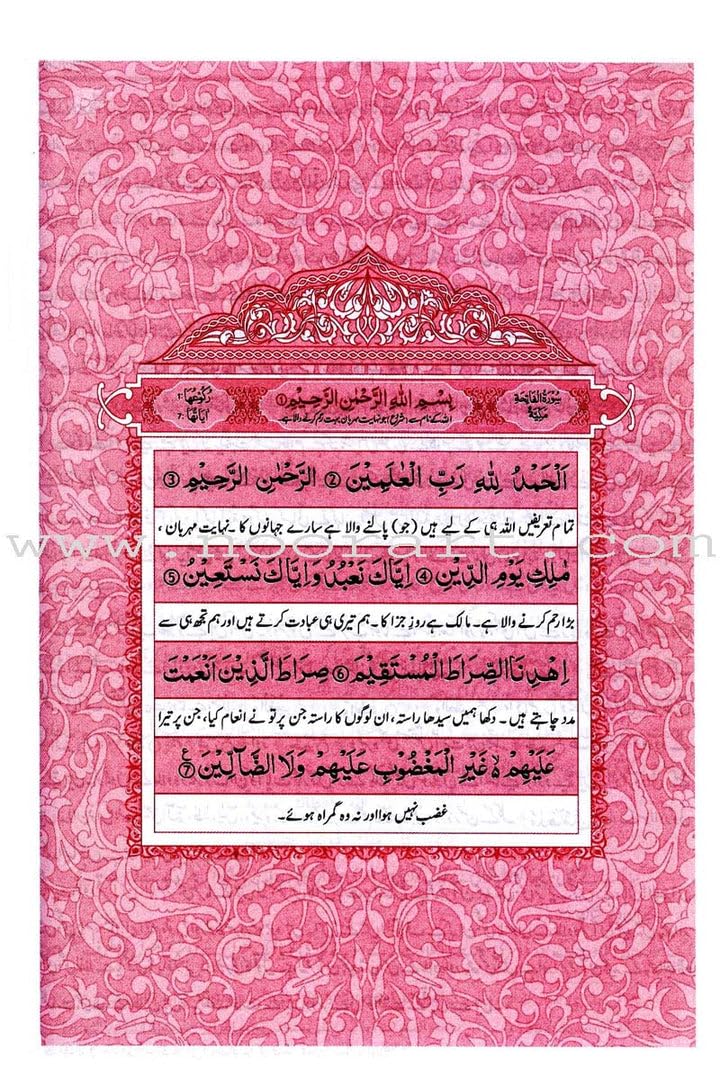 سُوْرَةُ الْفَاتِحَةِ مَكِّيَّةٌ
بِسْمِ اللّٰهِ الرَّحْمٰنِ الرَّحِيْمِ ①
اللہ کے نام سے (شروع) جو نہایت مہربان بہت رحم کرنے والا ہے۔
رُكُوْعُهَا: ١
اٰيَاتُهَا: ٧
اَلْحَمْدُ لِلّٰهِ رَبِّ الْعٰلَمِيْنَ ② الرَّحْمٰنِ الرَّحِيْمِ ③
تمام تعریفیں اللہ ہی کے لیے ہیں (جو) پالنے والا ہے سارے جہانوں کا۔ نہایت مہربان ،
www.noorart.com
مٰلِكِ يَوْمِ الدِّيْنِ ④ اِيَّاكَ نَعْبُدُ وَاِيَّاكَ نَسْتَعِيْنُ ⑤
بڑا رحم کرنے والا ہے۔ مالک ہے روزِ جزا کا۔ ہم تیری ہی عبادت کرتے ہیں اور ہم تجھ ہی سے
اِهْدِنَا الصِّرَاطَ الْمُسْتَقِيْمَ ⑥ صِرَاطَ الَّذِيْنَ اَنْعَمْتَ
مدد چاہتے ہیں ۔ دکھا ہمیں سیدھا راستہ ، ان لوگوں کا راستہ جن پر تو نے انعام کیا، جن پر تیرا
عَلَيْهِمْ ۙ غَيْرِ الْمَغْضُوْبِ عَلَيْهِمْ وَلَا الضَّآلِّيْنَ ⑦ ع
غضب نہیں ہوا اور نہ وہ گمراہ ہوئے۔